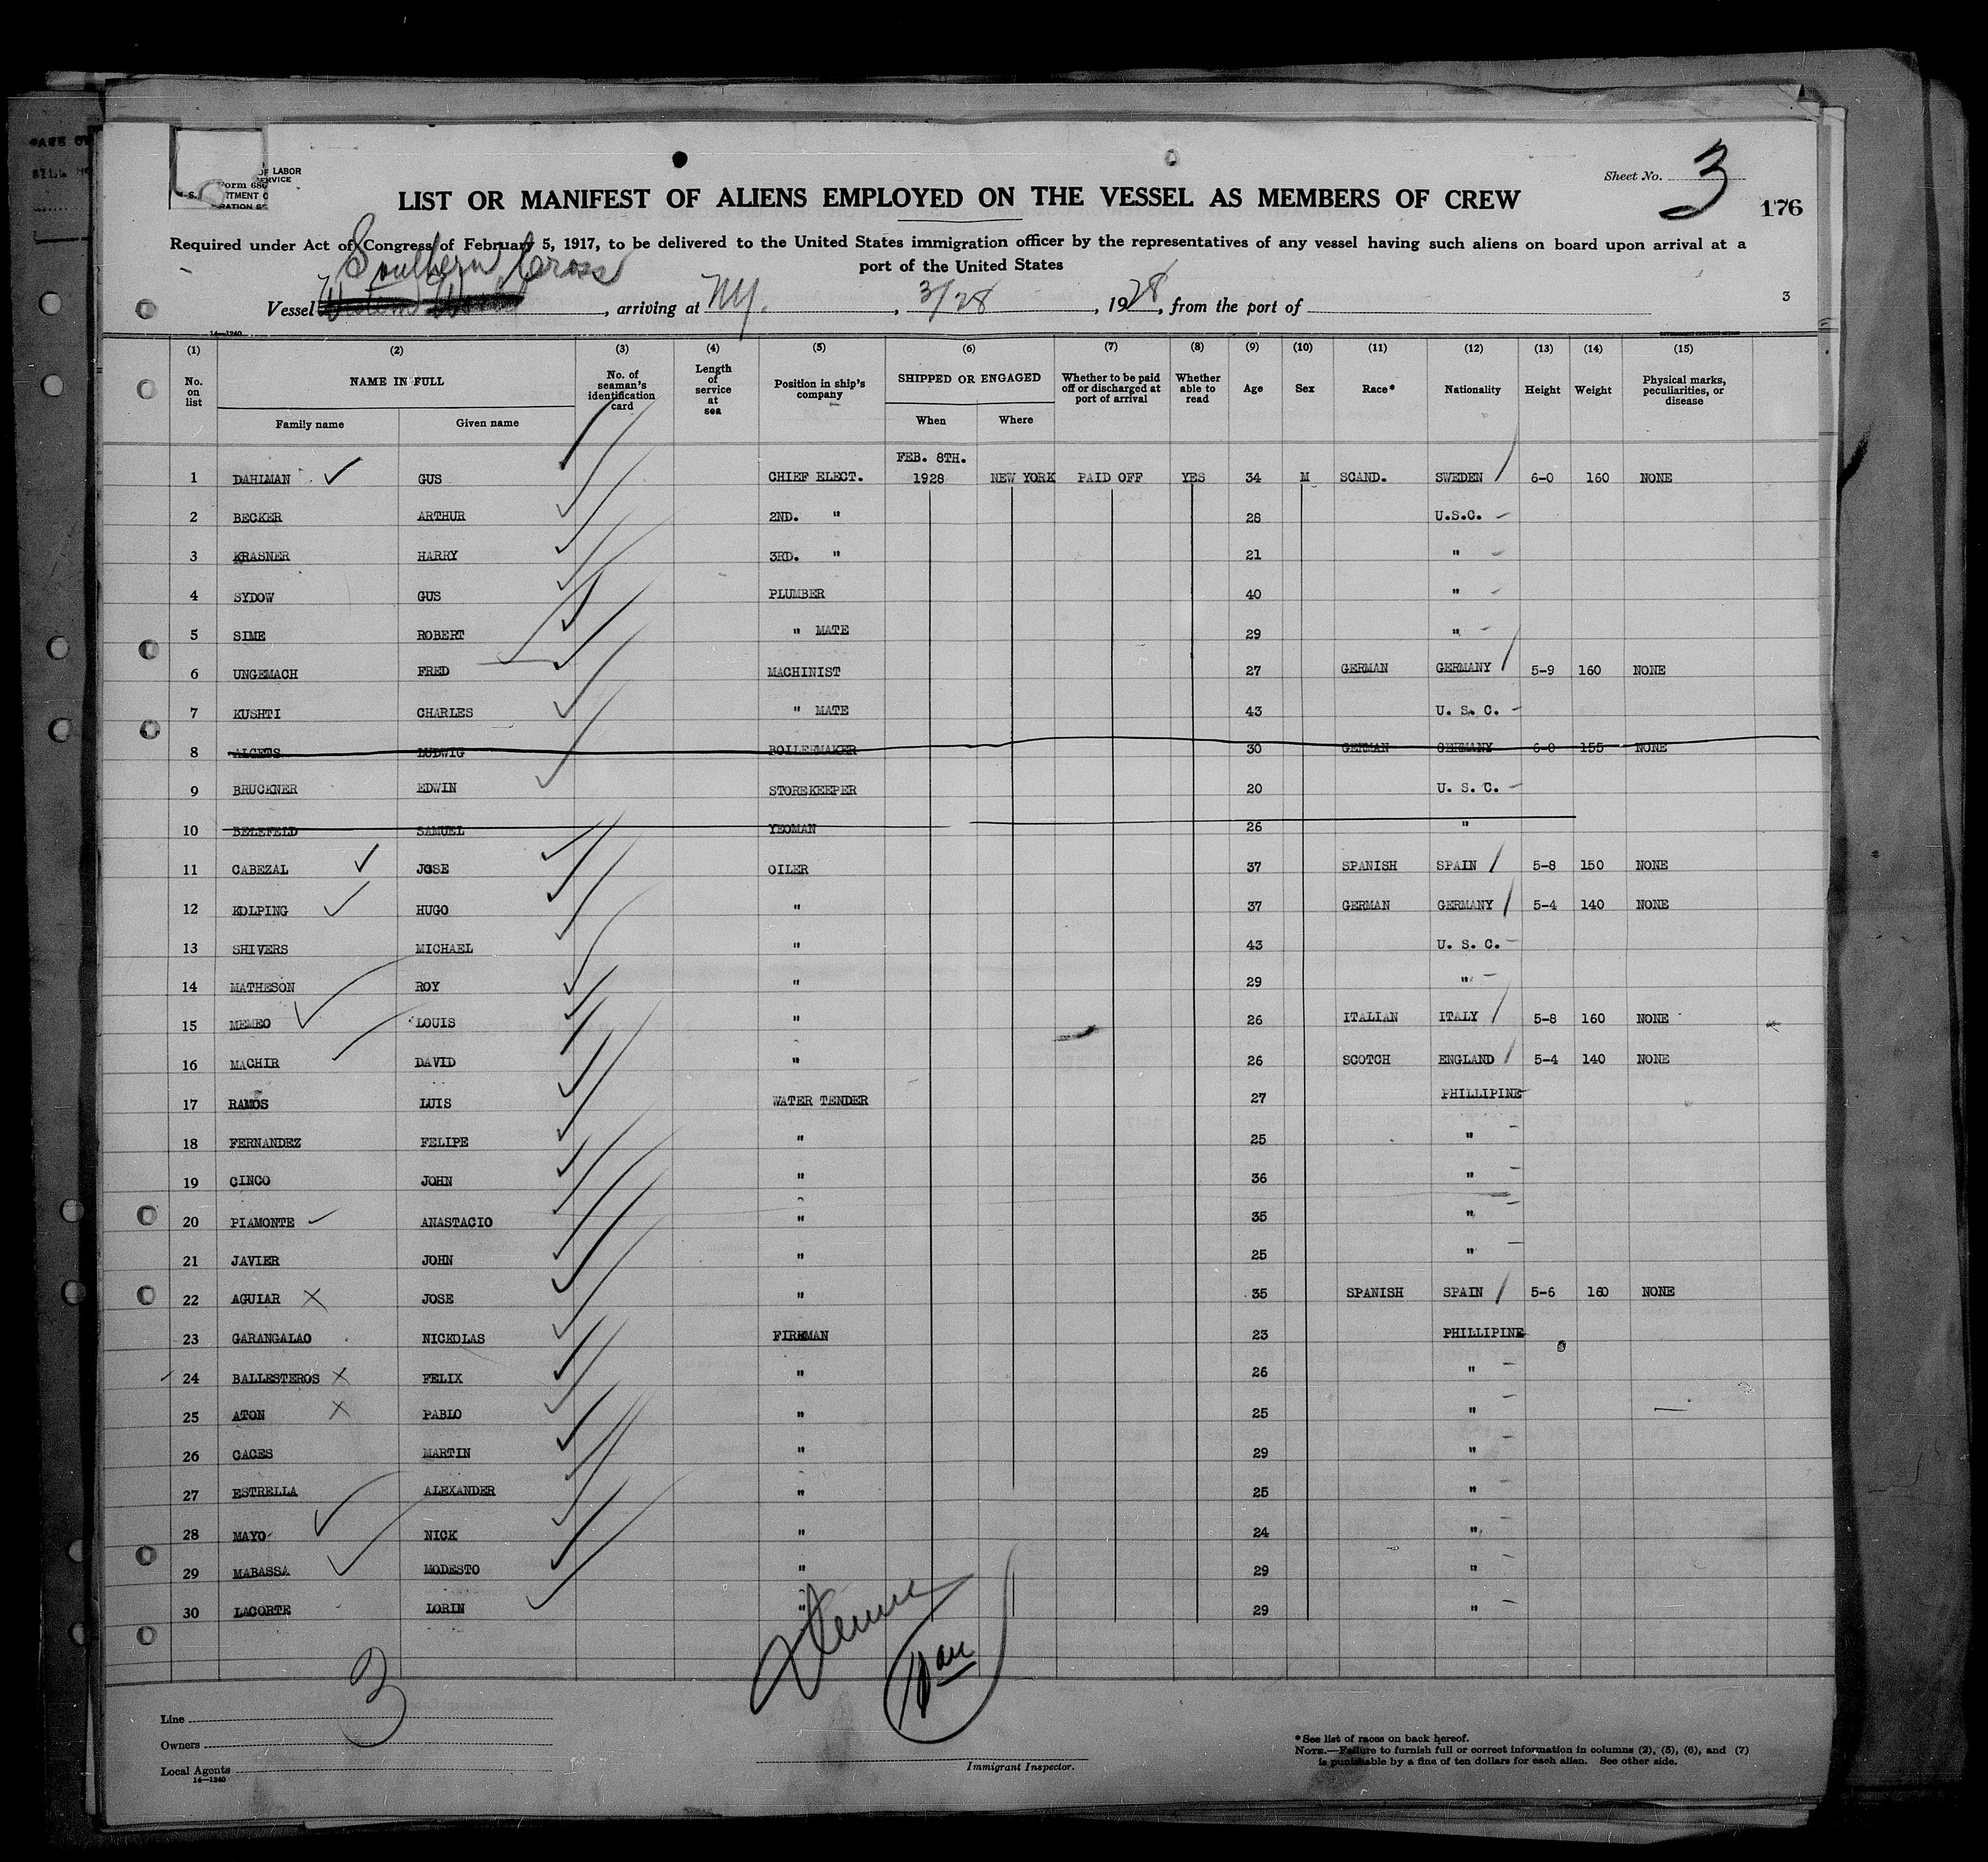 OF LABOR
SERVICE
Form 680
U. S.
Sheet No. 3
176
LIST OR MANIFEST OF ALIENS EMPLOYED ON THE VESSEL AS MEMBERS OF CREW
Required under Act of Congress of February 5, 1917, to be delivered to the United States immigration officer by the representatives of any vessel having such aliens on board upon arrival at a
port of the United States
Southern Cross
Vessel , arriving at N.Y. , 3/28 , 1928 , from the port of
3
14—1240
(1) (2) (3) (4) (5) (6) (7) (8) (9) (10) (11) (12) (13) (14) (15)
No. on list NAME IN FULL Family name Given name No. of seaman's identification card Length of service at sea Position in ship's company SHIPPED OR ENGAGED When Where Whether to be paid off or discharged at port of arrival Whether able to read Age Sex Race* Nationality Height Weight Physical marks, peculiarities, or disease
FEB. 8TH.
1 DAHLMAN GUS CHIEF ELECT. 1928 NEW YORK PAID OFF YES 34 M SCAND. SWEDEN 6-0 160 NONE
2 BECKER ARTHUR 2ND. " 28 U.S.C.
3 KRASNER HARRY 3RD. " 21 "
4 SYDOW GUS PLUMBER 40 "
5 SIME ROBERT " MATE 29 "
6 UNGEMACH FRED MACHINIST 27 GERMAN GERMANY 5-9 160 NONE
7 KUSHTI CHARLES " MATE 43 U. S. C.
8 ALGETS LUDWIG BOILERMAKER 30 GERMAN GERMANY 6-0 155 NONE
9 BRUCKNER EDWIN STOREKEEPER 20 U. S. C.
10 BELEFELD SAMUEL YEOMAN 26 "
11 CABEZAL JOSE OILER 37 SPANISH SPAIN 5-8 150 NONE
12 KOLPING HUGO " 37 GERMAN GERMANY 5-4 140 NONE
13 SHIVERS MICHAEL " 43 U. S. C.
14 MATHESON ROY " 29 "
15 MEMEO LOUIS " 26 ITALIAN ITALY 5-8 160 NONE
16 MACHIR DAVID " 26 SCOTCH ENGLAND 5-4 140 NONE
17 RAMOS LUIS WATER TENDER 27 PHILLIPINE
18 FERNANDEZ FELIPE " 25 "
19 CINCO JOHN " 36 "
20 PIAMONTE ANASTACIO " 35 "
21 JAVIER JOHN " 25 "
22 AGUIAR JOSE " 35 SPANISH SPAIN 5-6 160 NONE
23 GARANGALAO NICKOLAS FIREMAN 23 PHILLIPINE
24 BALLESTEROS FELIX " 26 "
25 ATON PABLO " 25 "
26 CACES MARTIN " 29 "
27 ESTRELLA ALEXANDER " 25 "
28 MAYO NICK " 24 "
29 MABASSA MODESTO " 29 "
30 LACORTE LORIN " 29 "
3
Line
Owners
Local Agents
14—1240
Immigrant Inspector.
*See list of races on back hereof.
NOTE.—Failure to furnish full or correct information in columns (2), (5), (6), and (7)
is punishable by a fine of ten dollars for each alien. See other side.